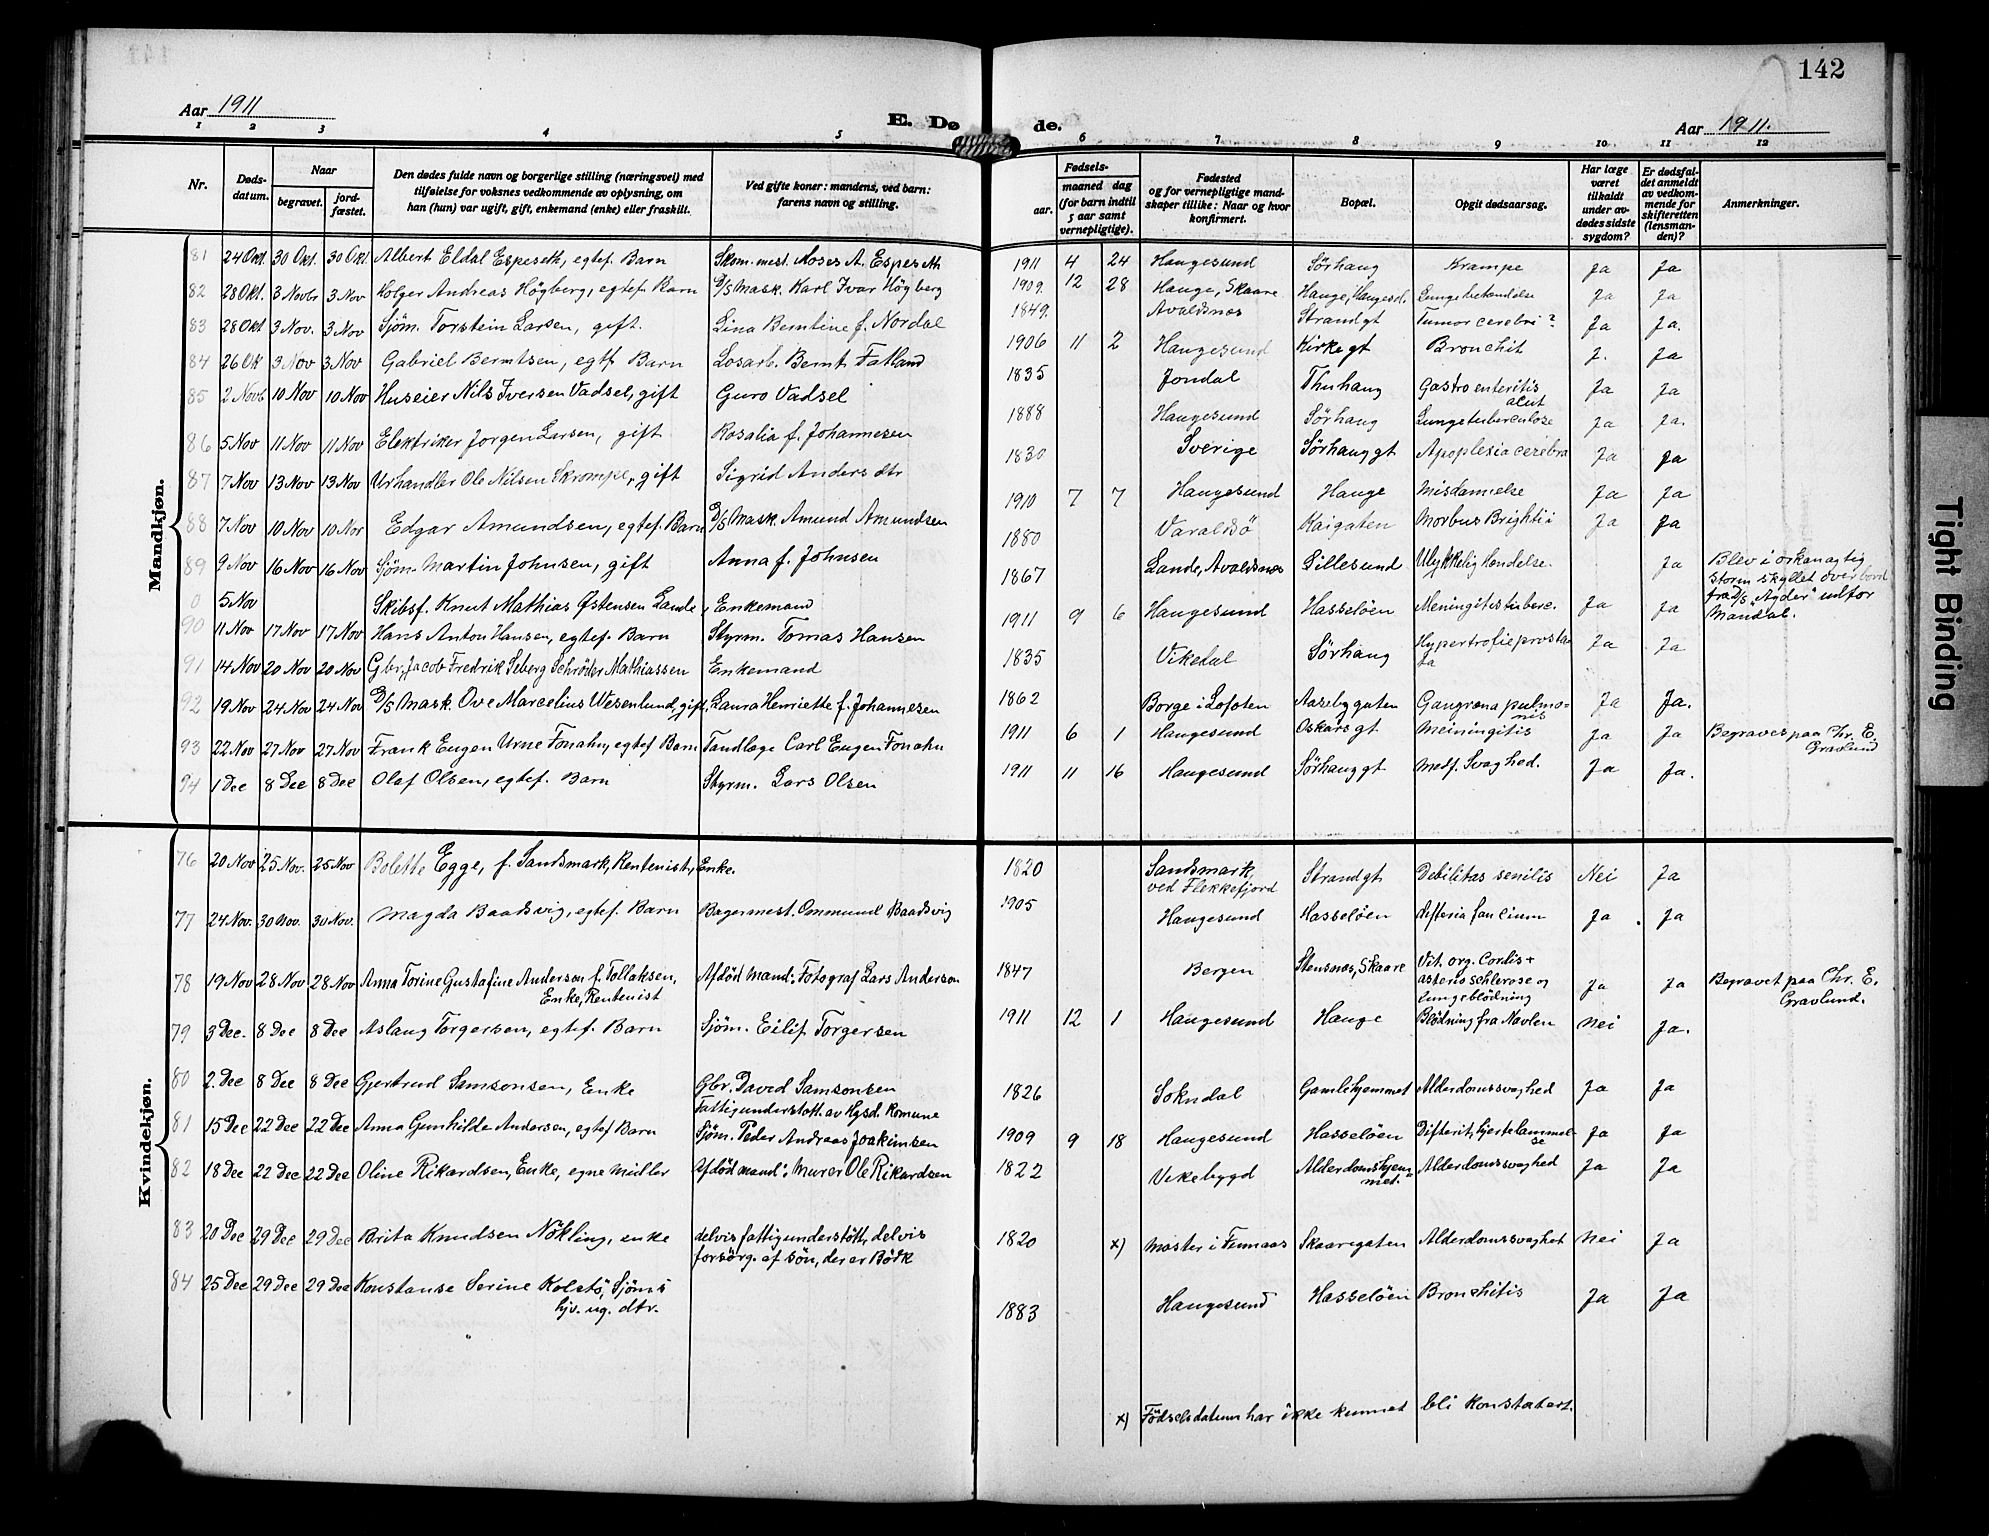 142
Aar 1911
E. Dø de.
Aar 1911.
1 2 3 4 5 6 7 8 9 10 11 12
Nr.
Døds-
datum.
Naar
begravet.
jord-
fæstet.
Den dødes fulde navn og borgerlige stilling (næringsvei) med
tilføielse for voksnes vedkommende av oplysning, om
han (hun) var ugift, gift, enkemand (enke) eller fraskilt.
Ved gifte koner: mandens, ved barn:
farens navn og stilling.
Fødsels-
aar.
maaned dag
(for barn indtil
5 aar samt
vernepligtige).
Fødested
og for vernepligtige mand-
skaper tillike: Naar og hvor
konfirmert.
Bopæl.
Opgit dødsaarsag.
Har læge
været
tilkaldt
under av-
dødes sidste
sygdom?
Er dødsfal-
det anmeldt
av vedkom-
mende for
skifteretten
(lensman-
den)?
Anmerkninger.
Mandkjøn.
81 24 Okt. 30 Okt. 30 Okt Albert Eldal Espeseth, egtef. Barn Skom. mest. Moses A. Espeseth 1911 4 24 Haugesund Sörhaug Krampe Ja Ja
82 28 Okt. 3 Novbr 3 Nov Holger Andreas Högberg, egtef. Barn D/S Mask. Karl Ivar Högberg 1909. 12 28 Hauge, Skaare Hauge, Haugesd. Lungebetændelse Ja Ja
83 28 Okt 3 Nov. 3 Nov Sjöm. Torstein Larsen, gift. Lina Bemtine f. Nordal 1849. Avaldsnes Strandgt Tumor cerebri? Ja Ja.
84 26 Ok 3 Nov 3 Nov Gabriel Berntsen, egtf. Barn Losarb. Bernt Fatland 1906 11 2 Haugesund Kirkegt Bronchit J. Ja
85 2 Novb 10 Nov 10 Nov Huseier Nils Iversen Vadsel, gift Guro Vadsel 1835 Jondal Thuhaug Gastro enteritis acut Ja Ja
86 5 Nov 11 Nov 11 Nov Elektriker Jorgen Larsen, gift Rosalia f. Johannesen 1888 Haugesund Sörhaug Lungetuberculose Ja Ja.
87 7 Nov 13 Nov 13 Nov Urhandler Ole Nilsen Skrompe, gift Sigrid Anders dtr 1830 Sverige Sörhauggt Apoplexia cerebra Ja Ja
88 7 Nov 10 Nov 10 Nov Edgar Amundsen, egtef. Barn D/S Mask. Amund Amundsen 1910 7 7 Haugesund Hauge Misdannelse Ja Ja
89 9 Nov 16 Nov 16 Nov Sjöm. Martin Johnsen, gift Anna f. Johnsen 1880 Varaldsö Kaigaten Morbus Brighti i Ja Ja
0 5 Nov Skibsf. Knut Mathias Østensen Lande, Enkemand 1867 Lande, Avaldsnes Lillesund Ulykkelig Hendelse. Ja Blev i orkanagtig
storm skyllet overbord
fra D/S "Agder" udfor
Mandal.
90 11 Nov 17 Nov 17 Nov Hans Anton Hansen, egtef. Barn Styrm. Tomas Hansen 1911 9 6 Haugesund Hasseløen Meningitis tuberc. Ja Ja
91 14 Nov 20 Nov 20 Nov Gbr. Jacob Fredrik Seberg Schröder Mathiassen Enkemand 1835 Vikedal Sørhaug Hypertrofie prosta-
ta Ja Ja
92 19 Nov 24 Nov 24 Nov D/S Mask. Ove Marcelius Wesenlund, gift, Laura Henriette f. Johannesen 1862 Borge i Lofoten Aasebygaten Gangrøna pulmo-
nis Ja Ja.
93 22 Nov 27 Nov 27 Nov Frank Eugen Urne Fonahn, egtef Barn Tandlæge Carl Eugen Fonahn 1911 6 1 Haugesund Oskarsgt Meiningitis Ja Ja Begraves paa Chr. E.
Gravlund
94 1 Dec 8 Dec 8 Dec Olaf Olsen, egtef. Barn Styrm. Lars Olsen 1911 11 16 Haugesund Sörhauggt Medf. Svaghed. Ja Ja.
Kvindekjøn.
76 20 Nov 25 Nov. 25 Nov Bolette Egge, f. Sandsmark, Rentenist, Enke. 1820 Sandsmark,
ved Flekkefjord Strandgt Debilitas senilis Nei Ja
77 24 Nov. 30 Nov. 30 Nov. Magda Baadsvig, egtef. Barn Bagermest. Ommund Baadsvig 1905 Haugesund Hasselöen difteria faucium Ja Ja
78 19 Nov 28 Nov 28 Nov Anna Torine Gustafine Anderson f. Tollaksen,
Enke, Rentenist Afdöd mand: Fotograf Lars Anderson 1847 Bergen Stensnes, Skaare Vit. org. Cordis +
asterioschlerose og
lungeblödning Ja Ja Begravet paa Chr. E.
Gravlund.
79 3 Dec. 8 Dec 8 Dec Aslaug Torgersen, egtef. Barn Sjöm. Eilif Torgersen 1911 12 1 Haugesund Hauge Blödning fra Navlen Nei Ja.
80 2. Dec 8 Dec 8 Dec Gjertrud Samsonsen, Enke Gbr. David Samsonsen
Fattigunderstött. av Hgsd. Komune 1826 Sokndal Gamlehjemmet Alderdomssvaghed Ja Ja
81 15 Dec 22 Dec 22 Dec Anna Gunhilde Andersen, egtef Barn Sjöm. Peder Andreas Joakimsen 1909 9 18 Haugesund Hasselöen Difterit, hjertelammel-
se Ja Ja
82 18 Dec 22 Dec 22 Dec Oline Rikardsen, Enke, egne midler Afdöd mand: Murer Ole Rikardsen 1822 Vikebygd Alderdomshjem-
met. Alderdomssvaghed Ja Ja
83 20 Dec 29 Dec 29 Dec Brita Knudsen Nökling, enke delvis fattigunderstött, delvis
forsörg. af sön, der er Bödk 1820 x) Moster i Finnaas Skaaregaten Alderdomssvaghet Nei Ja
84 25 Dec 29 Dec 29 Dec Konstanse Serine Kolstö, Sjöm's
hjv. ug. dtr. 1883 Haugesund Hasselöen Bronchitis Ja Ja
x) Födselsdatum har ikke kunnet bli konstatert.
Tight Binding